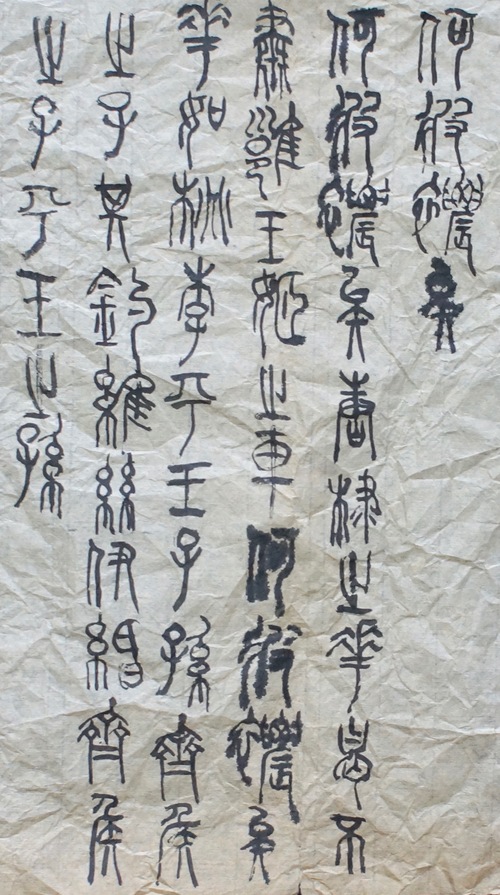 何彼襛矣
何彼襛矣唐棣之華曷不
肅雝王姬之車何彼襛矣
華如桃李平王子孫齊侯
之子其釣維絲伊緡齊侯
之子平王之孫